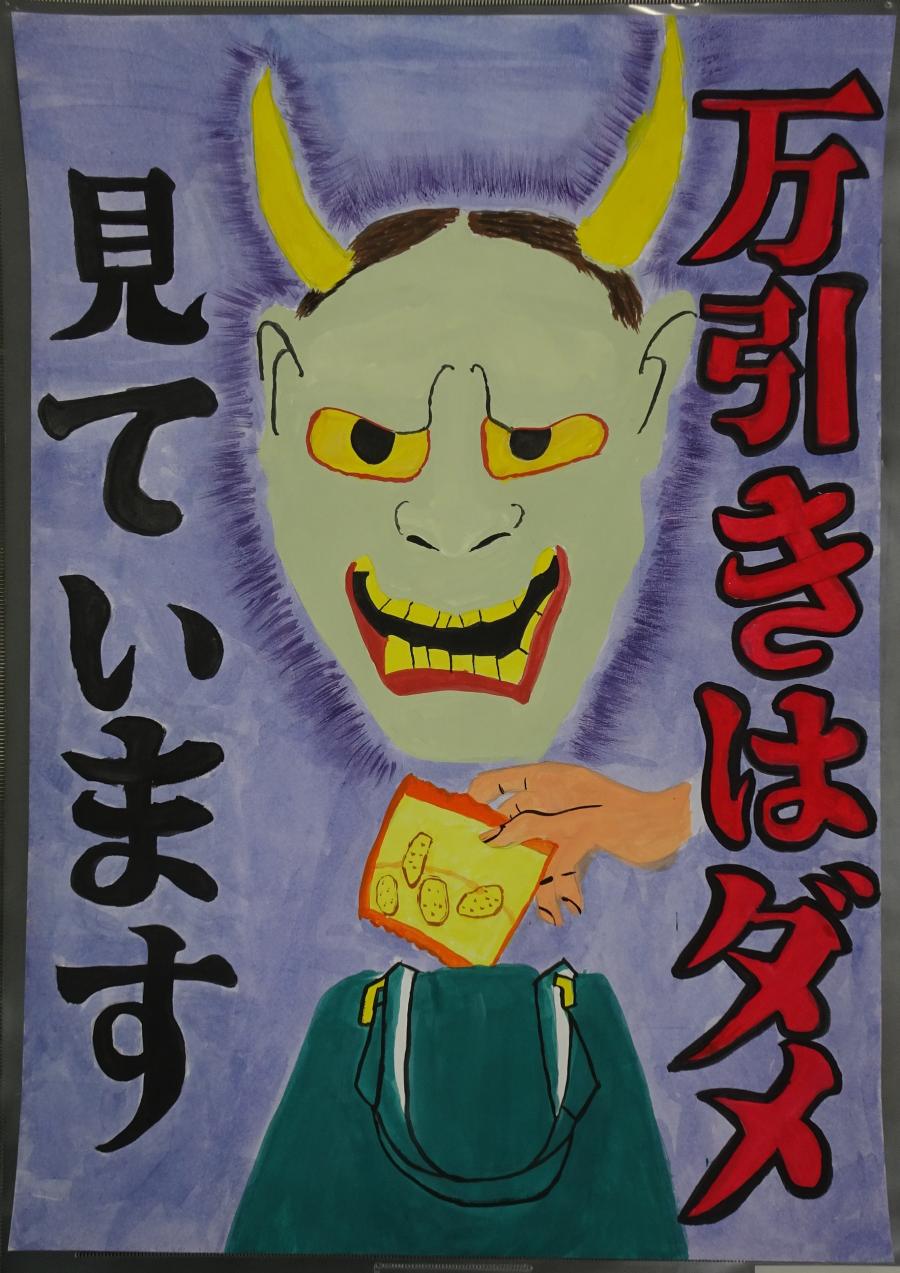 万引きはダメ
見ています